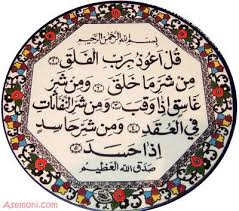 بسم الله الرحمن الرحيم
قُلْ أَعُوذُ بِرَبِّ الْفَلَقِ ﴿١﴾
مِن شَرِّ مَا خَلَقَ ﴿٢﴾ وَمِن شَرِّ
غَاسِقٍ إِذَا وَقَبَ ﴿٣﴾ وَمِن شَرِّ النَّفَّاثَاتِ
فِي الْعُقَدِ ﴿٤﴾ وَمِن شَرِّ حَاسِدٍ
إِذَا حَسَدَ ﴿٥﴾
صَدَقَ اللهُ الْعَظِيمُ
Asemoni.com